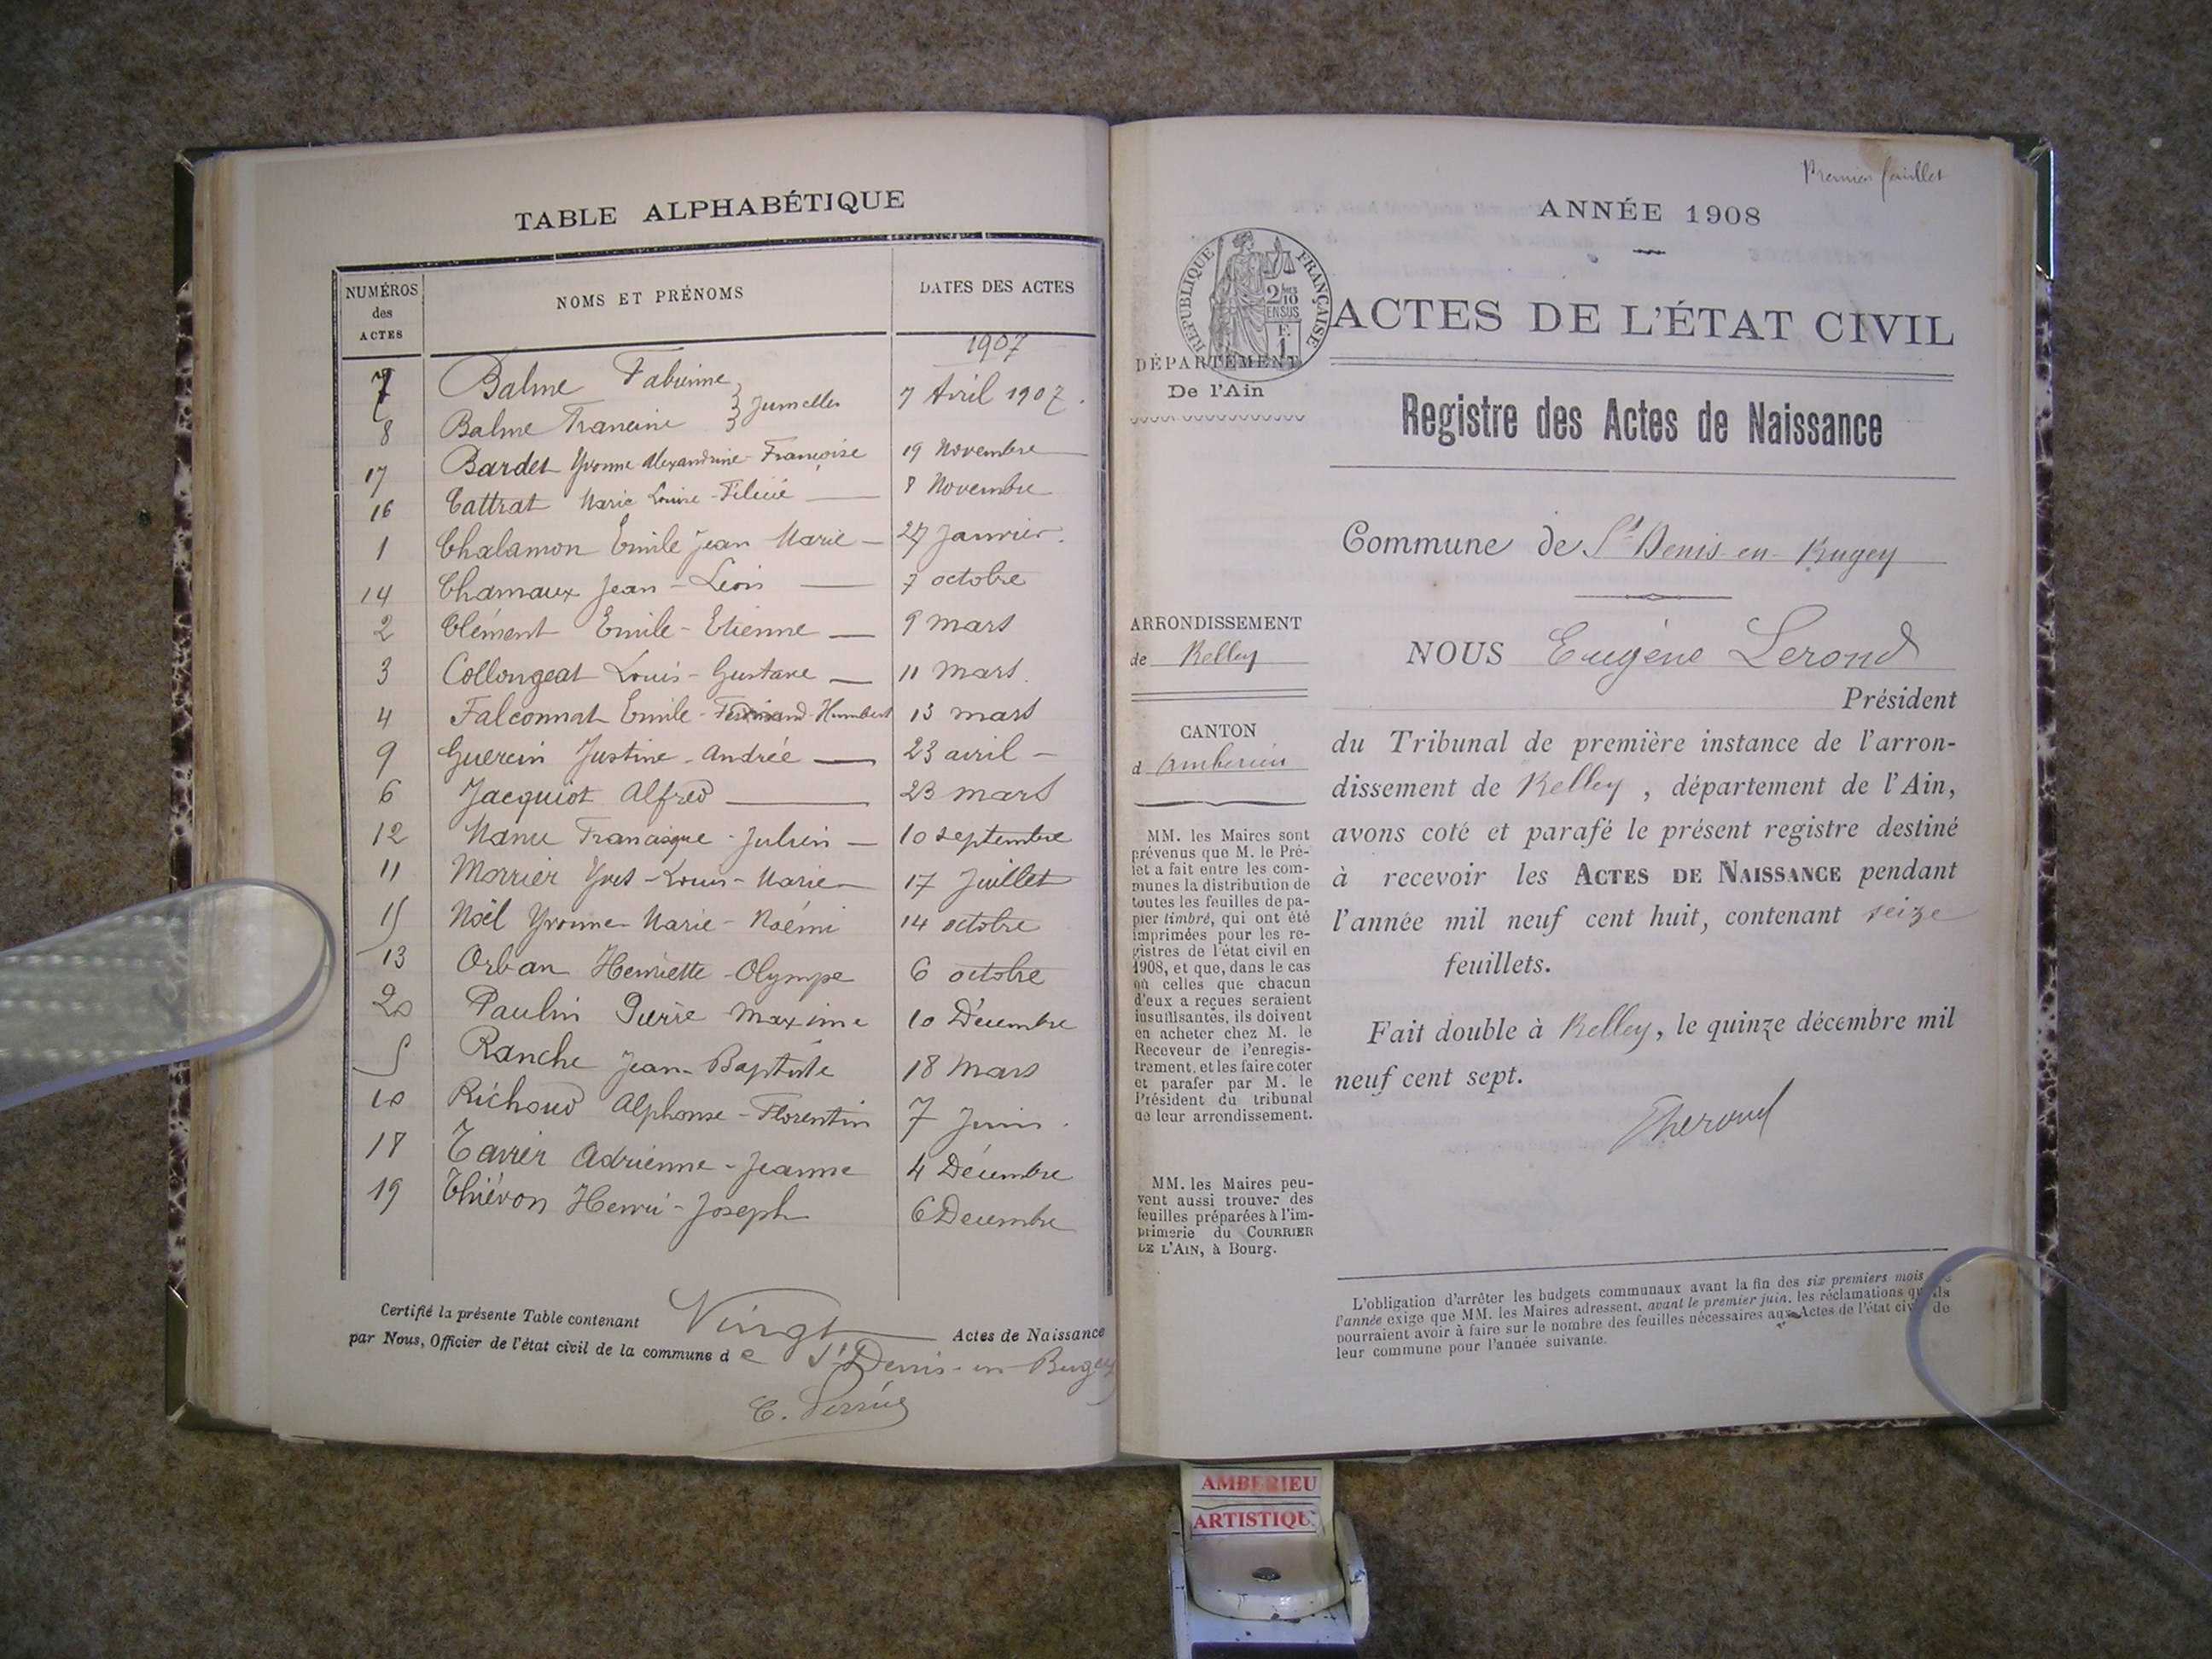 TABLE ALPHABÉTIQUE
NUMÉROS des ACTES
NOMS ET PRÉNOMS
DATES DES ACTES
1907
7 Balme Fabienne
8 Balme Francine } Jumelles 7 Avril 1907.
17 Bardet Yvonne Alexandrine-Françoise 19 Novembre
16 Cattrat Marie Louise-Félicie 8 Novembre
1 Chalamon Emile Jean Marie 27 Janvier.
14 Charnaux Jean-Léon 7 octobre
2 Clément Emile-Etienne 9 mars
3 Collongeat Louis-Gustave 11 mars.
4 Falconnat Emile-Fernand-Humbert 13 mars
9 Guerrin Justine-Andrée 23 avril
6 Jacquiot Alfred 23 mars
12 Francisque-Julien 10 septembre
11 Morrier Yves-Louis-Marie 17 Juillet
15 Noël Yvonne-Marie-Noémi 14 octobre
13 Orban Henriette-Olympe 6 octobre
20 Paulin Pierre Maxime 10 Décembre
5 Ranche Jean-Baptiste 18 Mars
10 Richoud Alphonse-Florentin 7 Juin.
18 Tavier Adrienne-Jeanne 4 Décembre
19 Thiévon Henri-Joseph 6 Décembre
Certifié la présente Table contenant Vingt Actes de Naissance
par Nous, Officier de l'état civil de la commune de St Denis-en-Bugey
Premier feuillet
ANNÉE 1908
RÉPUBLIQUE FRANÇAISE
2/10
EN SUS
F.
1
ACTES DE L'ÉTAT CIVIL
DÉPARTEMENT
De l'Ain
Registre des Actes de Naissance
Commune de St Denis-en-Bugey
ARRONDISSEMENT
de Belley
CANTON
d'Ambérieu
MM. les Maires sont
prévenus que M. le Pré-
fet a fait entre les com-
munes la distribution de
toutes les feuilles de pa-
pier timbré, qui ont été
imprimées pour les re-
gistres de l'état civil en
1908, et que, dans le cas
où celles que chacun
d'eux a reçues seraient
insuffisantes, ils doivent
en acheter chez M. le
Receveur de l'enregis-
trement, et les faire coter
et parafer par M. le
Président du tribunal
de leur arrondissement.
MM. les Maires peu-
vent aussi trouver des
feuilles préparées à l'im-
primerie du COURRIER
DE L'AIN, à Bourg.
NOUS Eugène Lerond
Président
du Tribunal de première instance de l'arron-
dissement de Belley, département de l'Ain,
avons coté et parafé le présent registre destiné
à recevoir les ACTES DE NAISSANCE pendant
l'année mil neuf cent huit, contenant seize
feuillets.
Fait double à Belley, le quinze décembre mil
neuf cent sept.
L'obligation d'arrêter les budgets communaux avant la fin des six premiers mois de
l'année exige que MM. les Maires adressent, avant le premier juin, les réclamations qu'ils
pourraient avoir à faire sur le nombre des feuilles nécessaires aux Actes de l'état civil de
leur commune pour l'année suivante.
AMBERIEU
ARTISTIQU